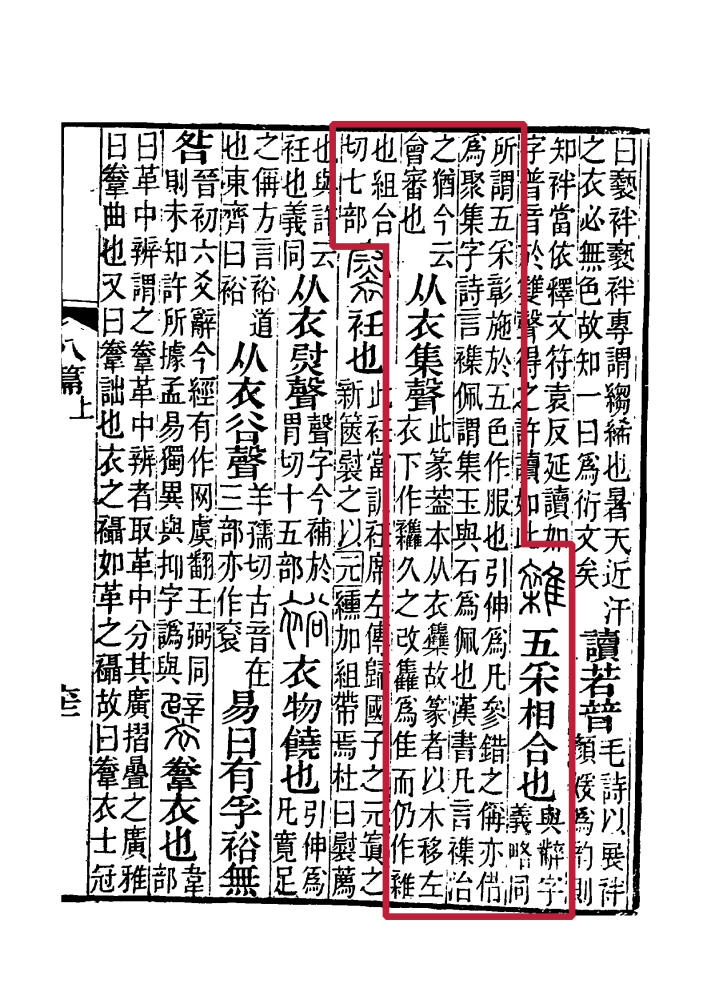 曰褻袢褻袢專謂縐絺也暑天近汗
之衣必無色故知一曰爲衍文矣
讀若普
毛詩以展袢
顏媛爲韵則
知袢當依釋文符袁反延讀如
字普音於雙聲得之許讀如此
雜
五采相合也
與辬字
義略同
所謂五采彰施於五色作服也引伸爲凡參錯之偁亦借
爲聚集字詩言襍佩謂集玉與石爲佩也漢書凡言襍治
之猶今云
會審也
从衣集聲
此篆葢本从衣雧故篆者以木移左
衣下作雥久之改雥爲隹而仍作雜
也組合
切七部
褽
衽也
此衽當訓衽席左傳歸國子之元寘之
新篋褽之以元纁加組帶焉杜曰褽薦
也與許云
衽也義同
从衣㷉聲
聲字今補於
胃切十五部
裕
衣物饒也
引伸爲
凡寬足
之偁方言裕道
也東齊曰裕
从衣谷聲
羊孺切古音在
三部亦作㝐
易曰有孚裕無
咎
晉初六爻辭今經有作网虞翻王弼同
則未知許所據孟易獨異與抑字譌與
襞
韏衣也
韋
部
曰革中辨謂之韏革中辨者取革中分其廣摺疊之廣雅
曰韏曲也又曰韏詘也衣之襵如革之襵故曰韏衣士冠
八篇上